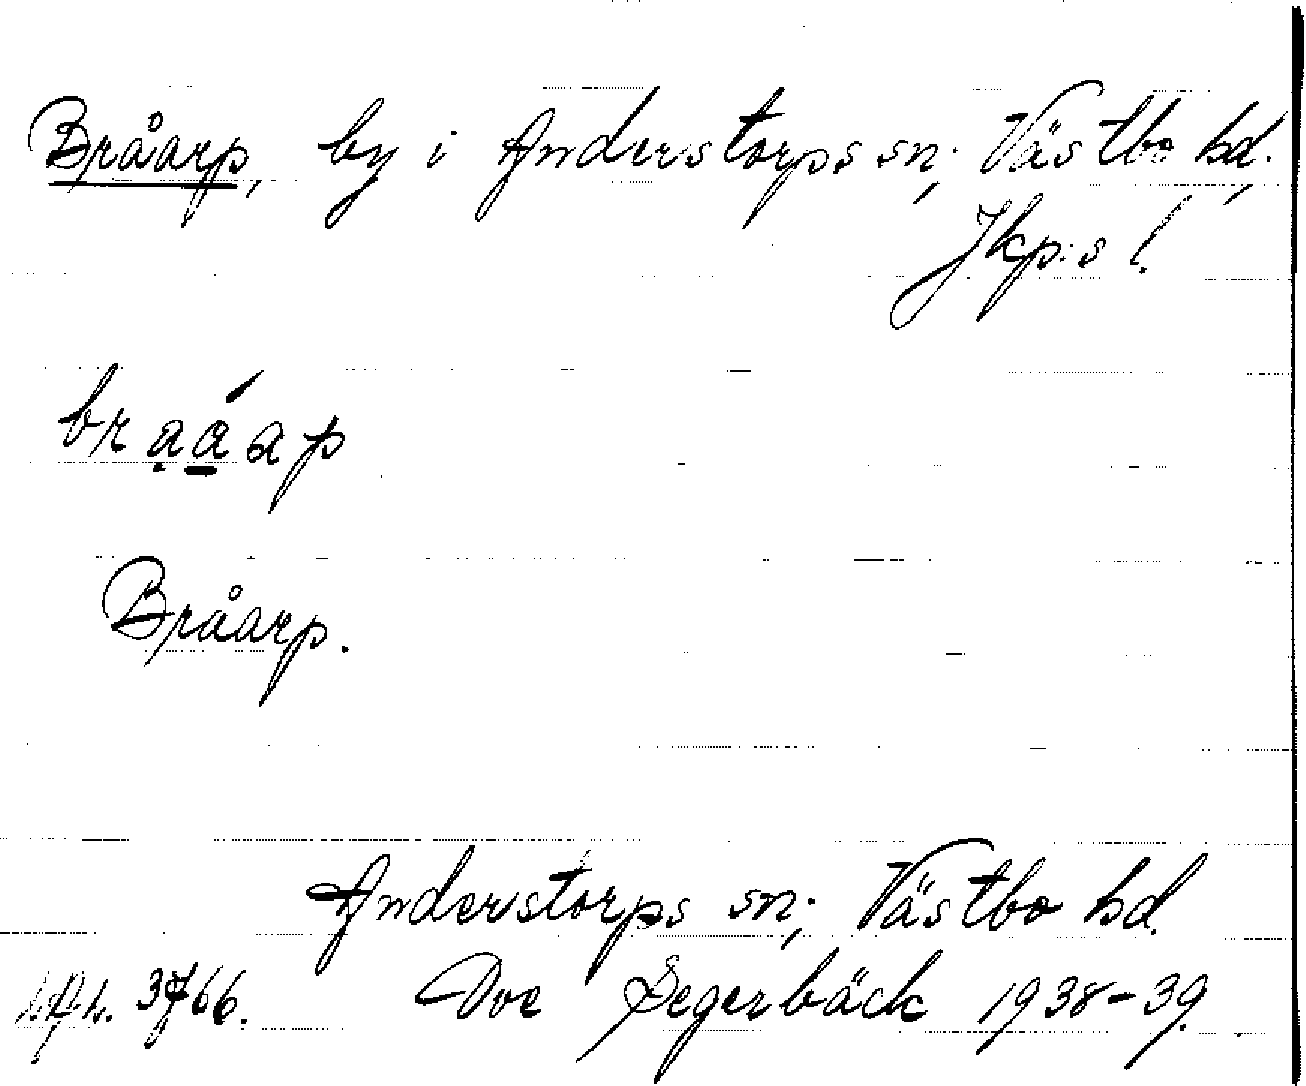 Bråarp, by i Anderstorps sn., Västbo hd.,
Jkp:s l.
brạá̱ap
Bråarp.
Anderstorps sn., Västbo hd.
3766. Ove Segerbäck 1938-39.